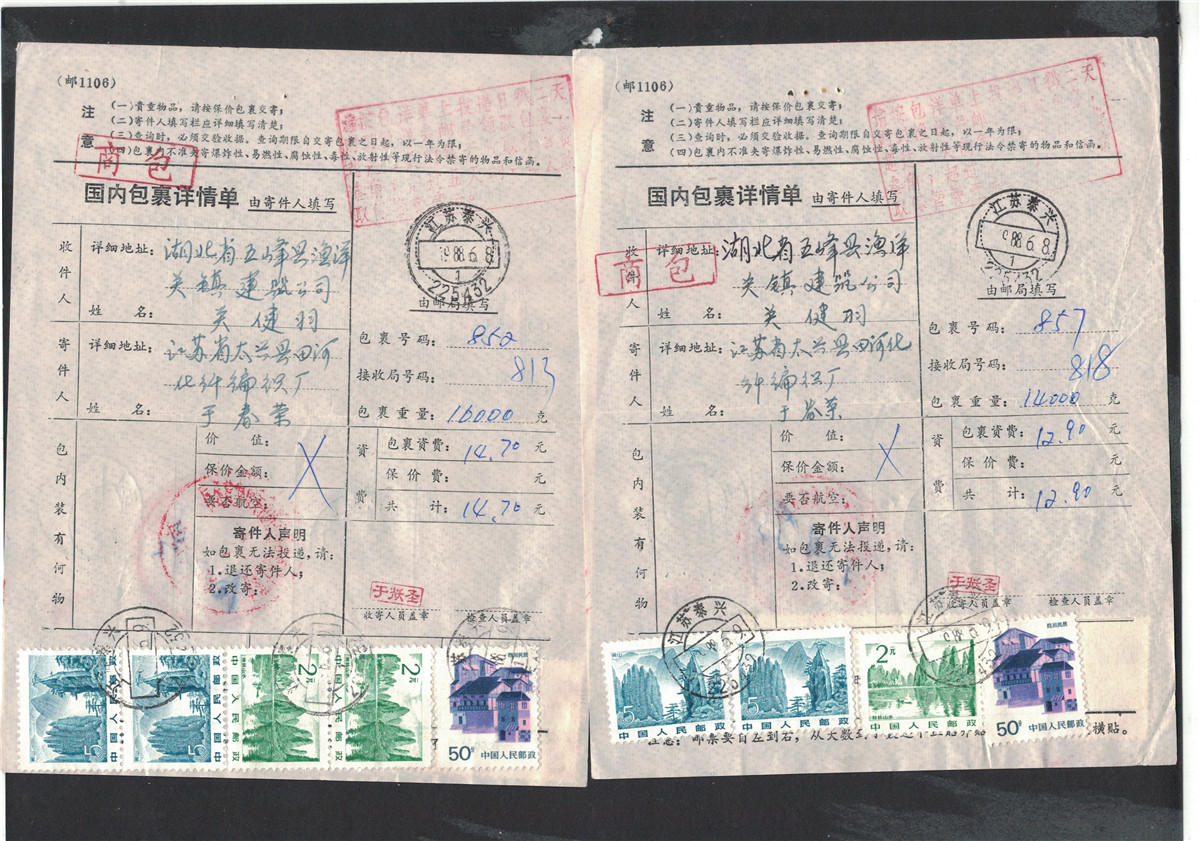 (邮1106)
注意
(一)贵重物品，请按保价包裹交寄；
(二)收寄人填写栏应详细填写清楚；
(三)查询时，必须交验收据。查询期限自交寄包裹之日起，以一年为限；
(四)包裹内不准夹寄爆炸性、易燃性、腐蚀性、毒性、放射性等现行法令禁寄的物品和信函。
商包
国内包裹详情单 由寄件人填写
江苏泰兴
1988.6.8
1
225432
由邮局填写
收件人
详细地址：湖北省五峰县渔洋
关镇建筑公司
姓名：关健羽
寄件人
详细地址：江苏省太兴县田河
化纤编织厂
姓名：于春荣
包裹号码：852
接收局号码：813
包裹重量：16000 克
包内装有何物
价值：
保价金额：
要否航空：
资费
包裹资费：14.70 元
保价费： 元
共计：14.70 元
寄件人声明
如包裹无法投递，请：
1.退还寄件人；
2.改寄：
于张圣
收寄人员盖章
检查人员盖章
5元
中国人民邮政
5元
中国人民邮政
2元
中国人民邮政
2元
中国人民邮政
四川民居
50分
中国人民邮政
(邮1106)
注意
(一)贵重物品，请按保价包裹交寄；
(二)收寄人填写栏应详细填写清楚；
(三)查询时，必须交验收据。查询期限自交寄包裹之日起，以一年为限；
(四)包裹内不准夹寄爆炸性、易燃性、腐蚀性、毒性、放射性等现行法令禁寄的物品和信函。
国内包裹详情单 由寄件人填写
江苏泰兴
1988.6.8
1
225432
由邮局填写
商包
收件人
详细地址：湖北省五峰县渔洋
关镇建筑公司
姓名：关健羽
寄件人
详细地址：江苏省太兴县田河化
纤编织厂
姓名：于春荣
包裹号码：857
接收局号码：818
包裹重量：14000 克
包内装有何物
价值：
保价金额：
要否航空：
资费
包裹资费：12.90 元
保价费： 元
共计：12.90 元
寄件人声明
如包裹无法投递，请：
1.退还寄件人；
2.改寄：
于张圣
收寄人员盖章
检查人员盖章
江苏泰兴
5元
中国人民邮政
5元
中国人民邮政
2元
中国人民邮政
四川民居
50分
中国人民邮政
注意：邮票要自左到右，从大数到小
横贴。